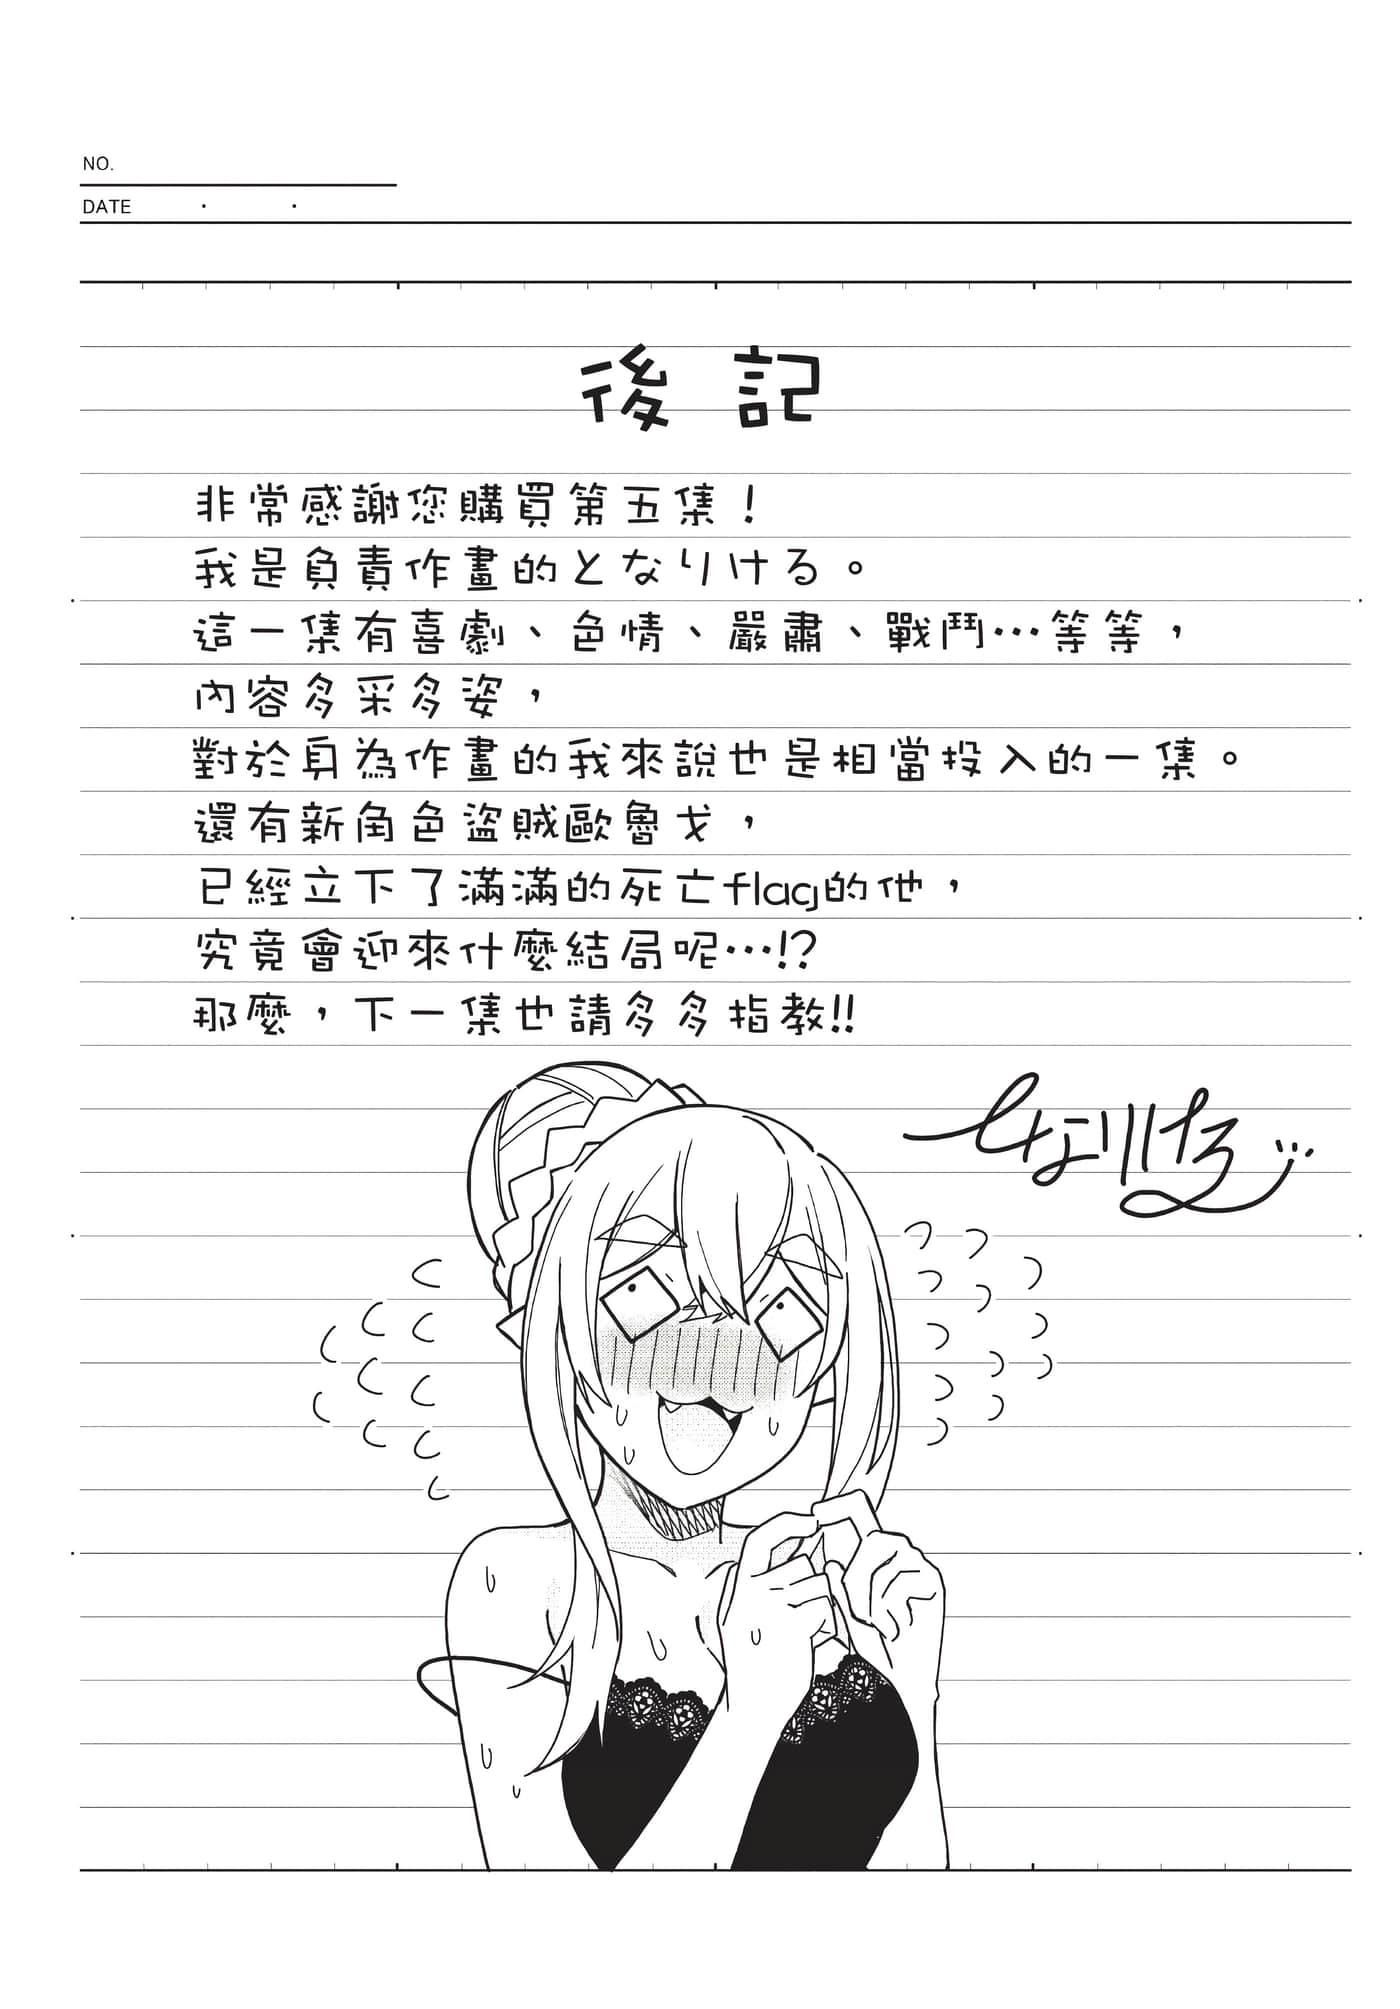 NO.
DATE ・ ・
後記
非常感謝您購買第五集！
我是負責作畫的となりける。
這一集有喜劇、色情、嚴肅、戰鬥…等等，
內容多采多姿，
對於身為作畫的我來說也是相當投入的一集。
還有新角色盜賊歐魯戈，
已經立下了滿滿的死亡flag的他，
究竟會迎來什麼結局呢…!?
那麼，下一集也請多多指教!!
となりける